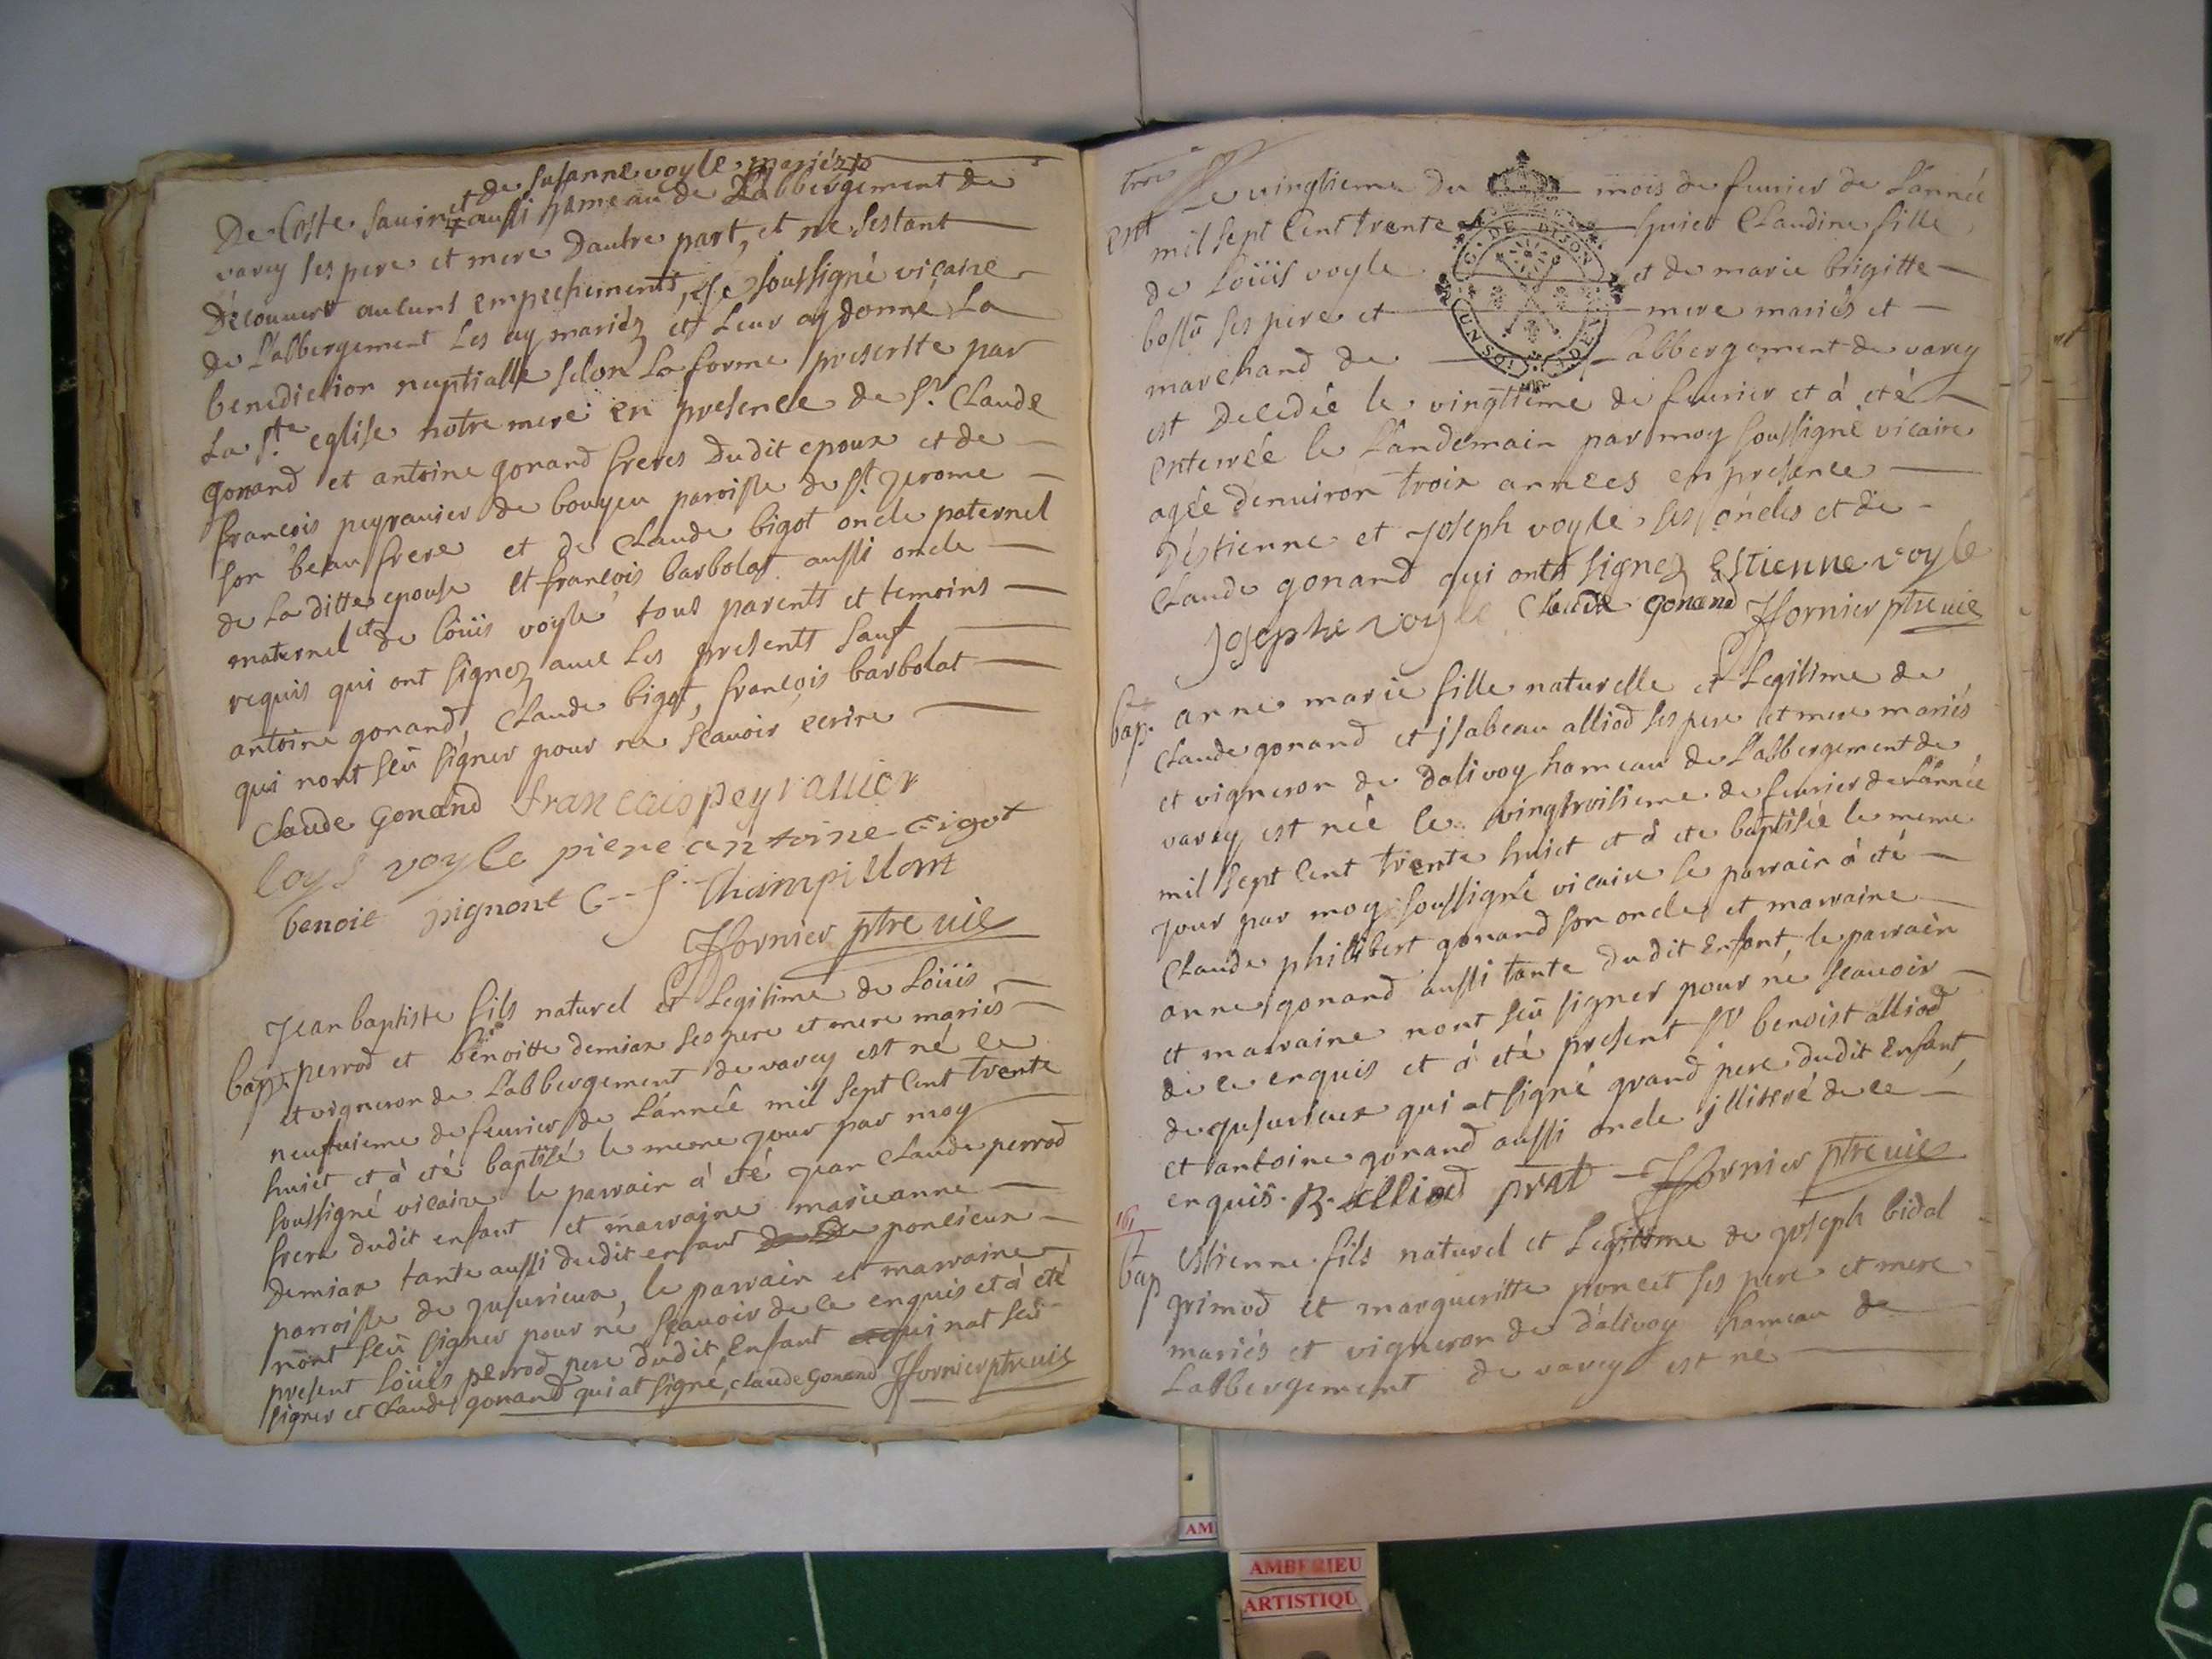 et de susanne voyle mariéz
De Coste savin aussi hameau de L'abbergement de
varey ses pere et mere Dautre part, et ne sestant
Découvert aucuns empechements, je soussigné vicaire
de L'abbergement Les ay mariéz et Leur ay donné La
benediction nuptialle selon La forme prescritte par
La Ste eglise notre mere en presence de Sr. Claude
gonand et antoine gonand freres Dudit epoux et de
francois peyravier de bouyeu paroisse de St jerome
son beau frere et de Claude bigot oncle paternel
de La ditte epouse et françois barbolat aussi oncle
maternel et de Loüis voyle tous parents et temoins
requis qui ont signez avec Les presents sauf
antoine gonand, Claude bigot, françois barbolat
qui nont sçû signer pour ne scavoir ecrire
Claude Gonand francais peyravier
loys voyle piere antoine Bigot
benoit pignont C--f. Thampillom
Jfornier ptre vic
Jean baptiste fils naturel et Legitime de Loüis
bapt. perrod et bénoitte demiax ses pere et mere mariés
et vigneron de L'abbergement de varey est né le
neufvieme de fevrier de L'année mil sept Cent trente
huict et à eté baptisé le meme jour par moy
soussigné vicaire le parrain à eté jean Claude perrod
frere dudit enfant et marraine marieanne
Demiax tante aussi dudit enfant de poncieux
parroisse de jusurieux, le parrain et marraine
nont sçû signer pour ne scavoir de ce enquis et à eté
present Loüis perrod pere dudit Enfant qui nat sçû
signer et Claude gonand qui at signé, claude Gonand Jfornier ptre vic
Le vingtieme du mois de fevrier de L'année
ent mil sept Cent trente huict Claudine fille
de Loüis voyle et de marie brigitte
bossu ses pere et mere mariés et
marchand de L'abbergement de varey
est Decedée le vingttieme de fevrier et à eté
enterrée le Landemain par moy soussigné vicaire
agée denviron trois années en presence
D'estienne et joseph voyle ses oncles et de
Claude gonand qui ont signez Estienne voyle
Josephe voyle Claude Gonand Jfornier ptre vic
bap. anne marie fille naturelle et Legitime de
Claude gonand et jsabeau alliod ses pere et mere mariés
et vigneron de Dalivoy hameau de L'abbergement de
varey est née le vingtroisieme de fevrier de L'année
mil sept Cent trente huict et à ete baptisée le meme
jour par moy soussigné vicaire le parrain à eté
Claude philibert gonand son oncle et marraine
anne gonand aussi tante dudit Enfant le parrain
et marraine nont sçû signer pour ne scavoir
de ce enquis et à eté present sr benoist alliod
de jusurieux qui at signé grand pere dudit Enfant
et antoine gonand aussi oncle jlliteré de ce
enquis. B. alliod prnt Jfornier ptre vic
161
bap Estienne fils naturel et Legitime de joseph bidal
grimod et margueritte poncet ses pere et mere
mariés et vigneron de dalivoy hameau de
Labbergement de varey est né
AM
AMBERIEU
ARTISTIQU